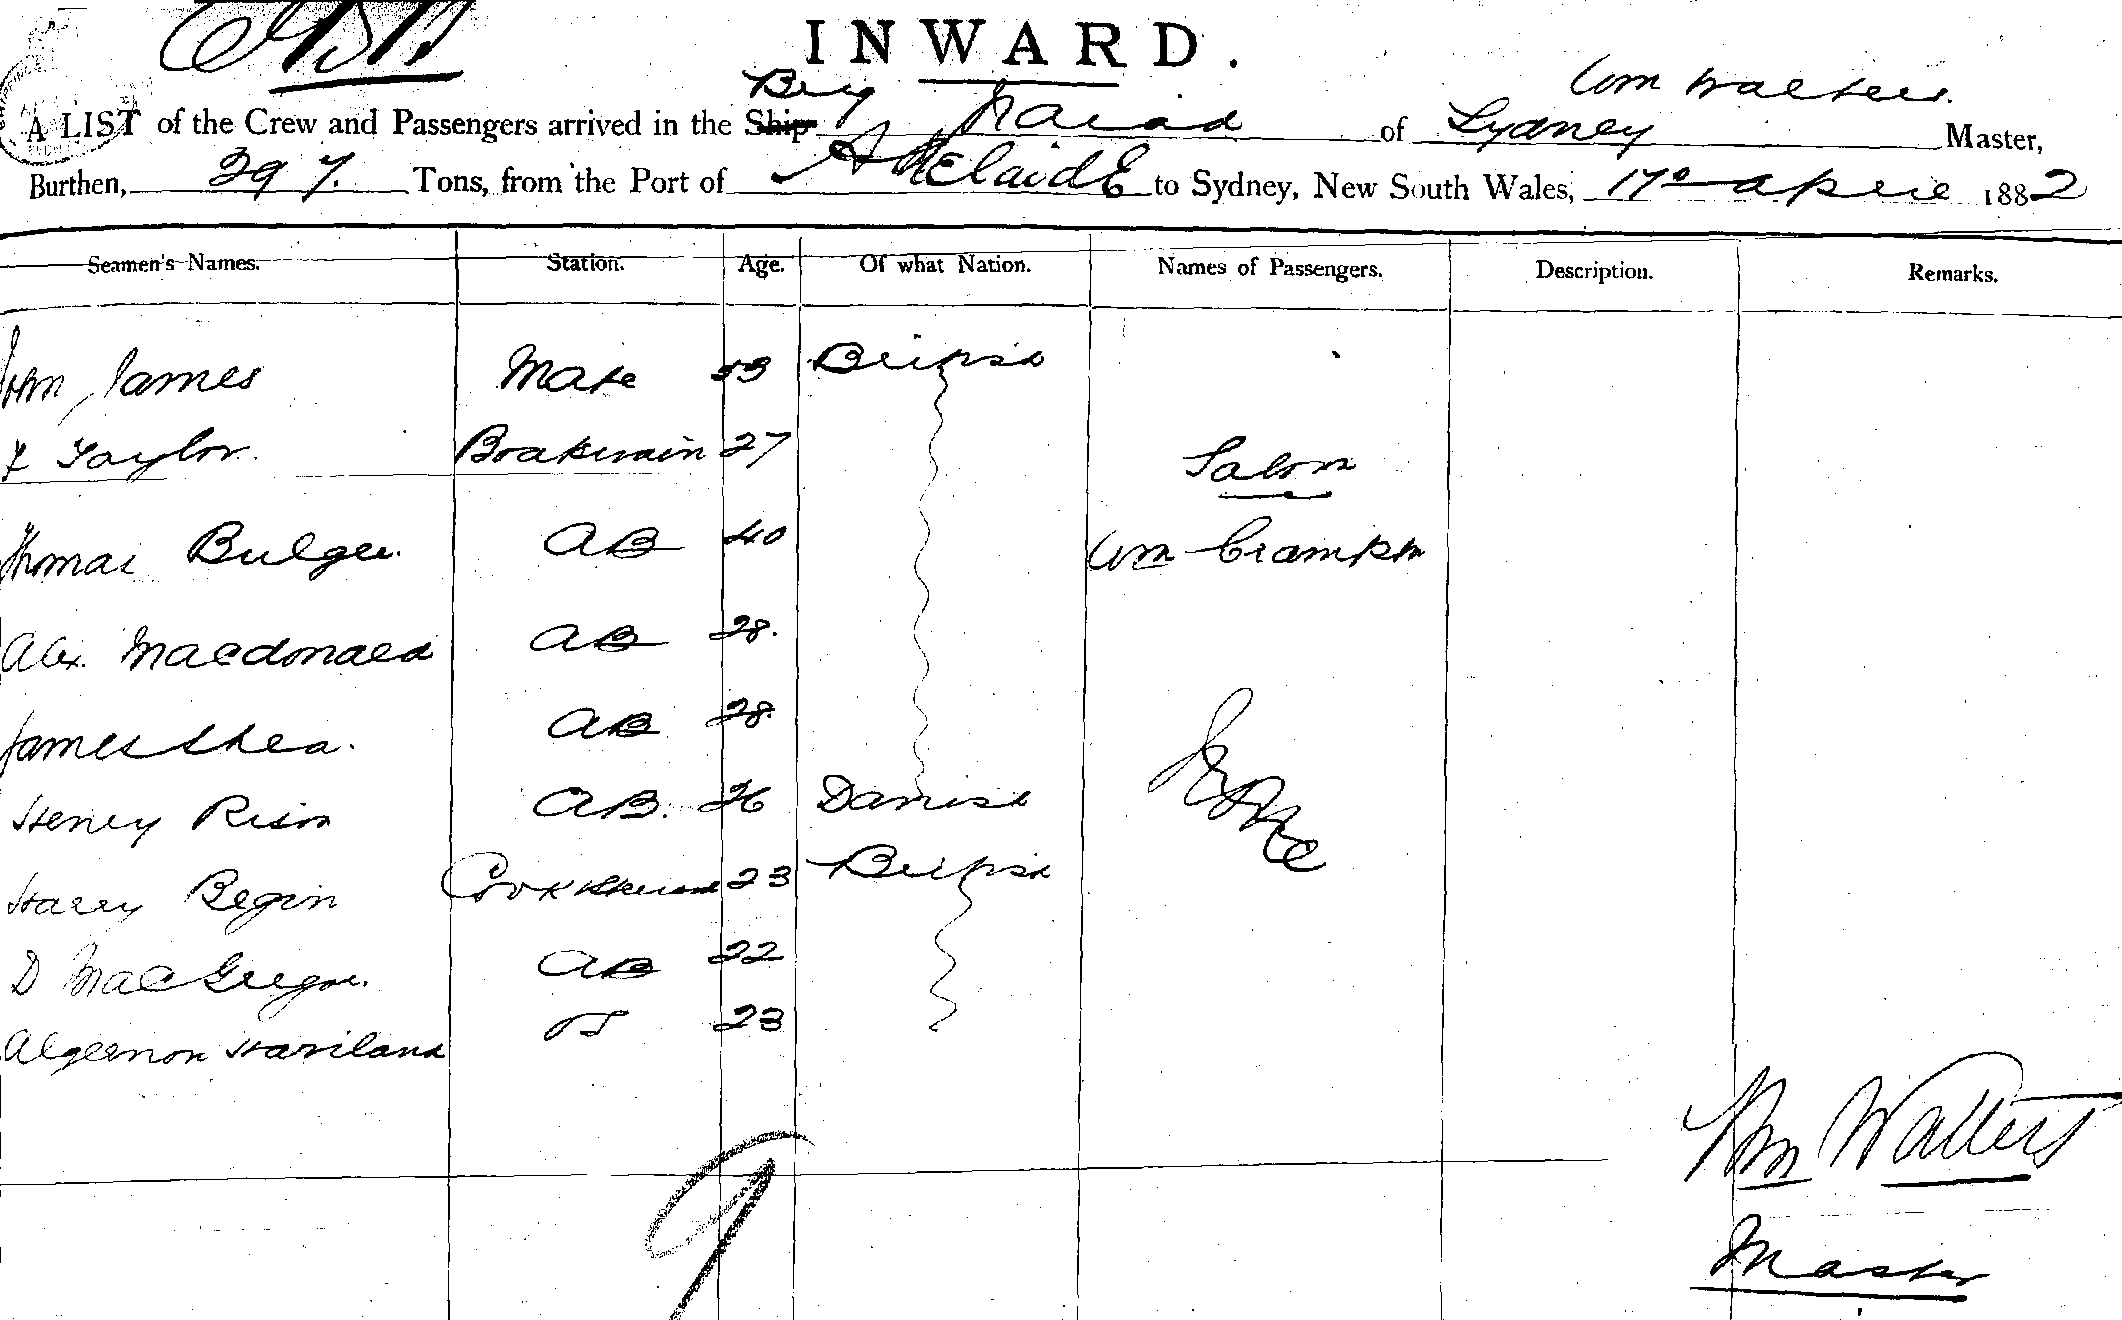 INWARD.
Brig Wm Walters.
A LIST of the Crew and Passengers arrived in the Ship Naiad of Sydney Master,
Burthen, 397. Tons, from the Port of Adelaide to Sydney, New South Wales, 17th April 1882
Seamen's Names. Station. Age. Of what Nation. Names of Passengers. Description. Remarks.
John James Mate 53 British
F Taylor. Boatswain 27
Saloon
Thomas Bulger. AB 40 Wm Crampton
Alex. Macdonald AB 28.
James Shea. AB 28.
Henry Rison AB. 26 Danish
None
Harry Begin Cook & Steward 23 British
D MacGregor. AB 22
Algernon Haviland OS 23
Wm Walters
9
Master